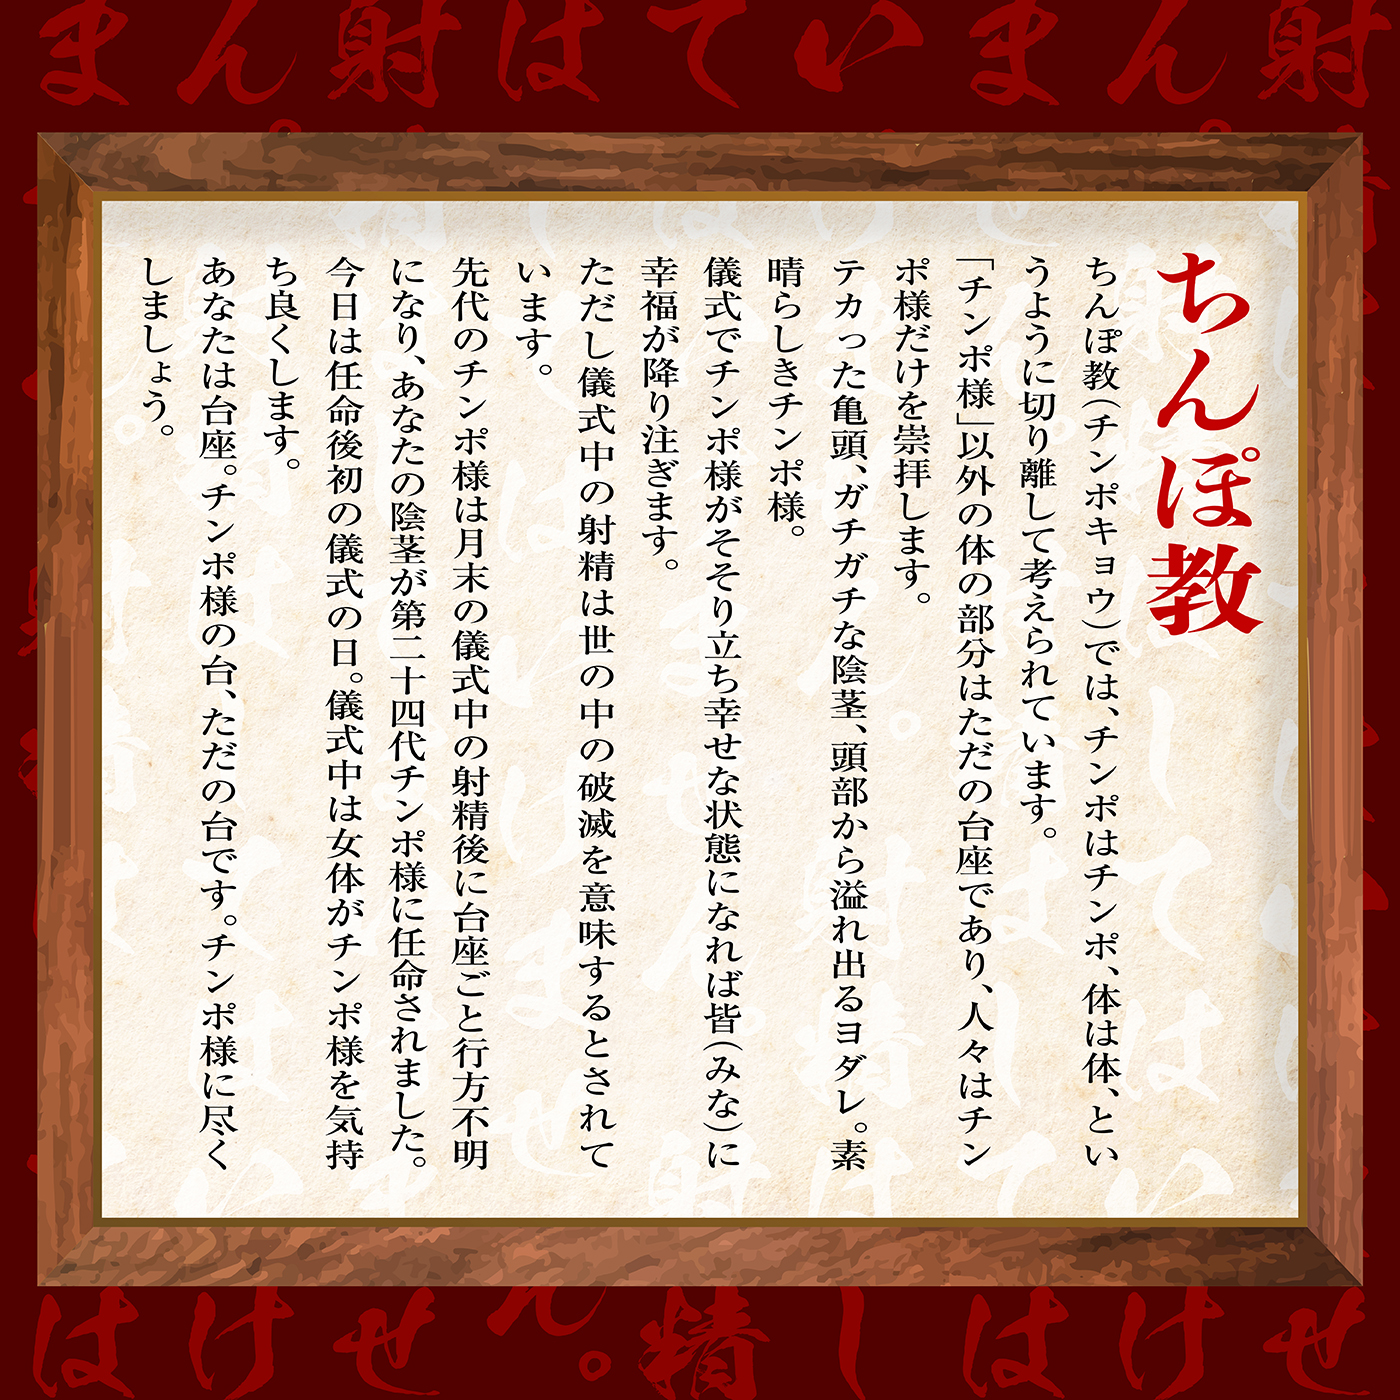 ちんぽ教
ちんぽ教(チンポキョウ)では、チンポはチンポ、体は体、とい
うように切り離して考えられています。
「チンポ様」以外の体の部分はただの台座であり、人々はチン
ポ様だけを崇拝します。
テカった亀頭、ガチガチな陰茎、頭部から溢れ出るヨダレ。素
晴らしきチンポ様。
儀式でチンポ様がそそり立ち幸せな状態になれば皆(みな)に
幸福が降り注ぎます。
ただし儀式中の射精は世の中の破滅を意味するとされて
います。
先代のチンポ様は月末の儀式中の射精後に台座ごと行方不明
になり、あなたの陰茎が第二十四代チンポ様に任命されました。
今日は任命後初の儀式の日。儀式中は女体がチンポ様を気持
ち良くします。
あなたは台座。チンポ様の台、ただの台です。チンポ様に尽く
しましょう。